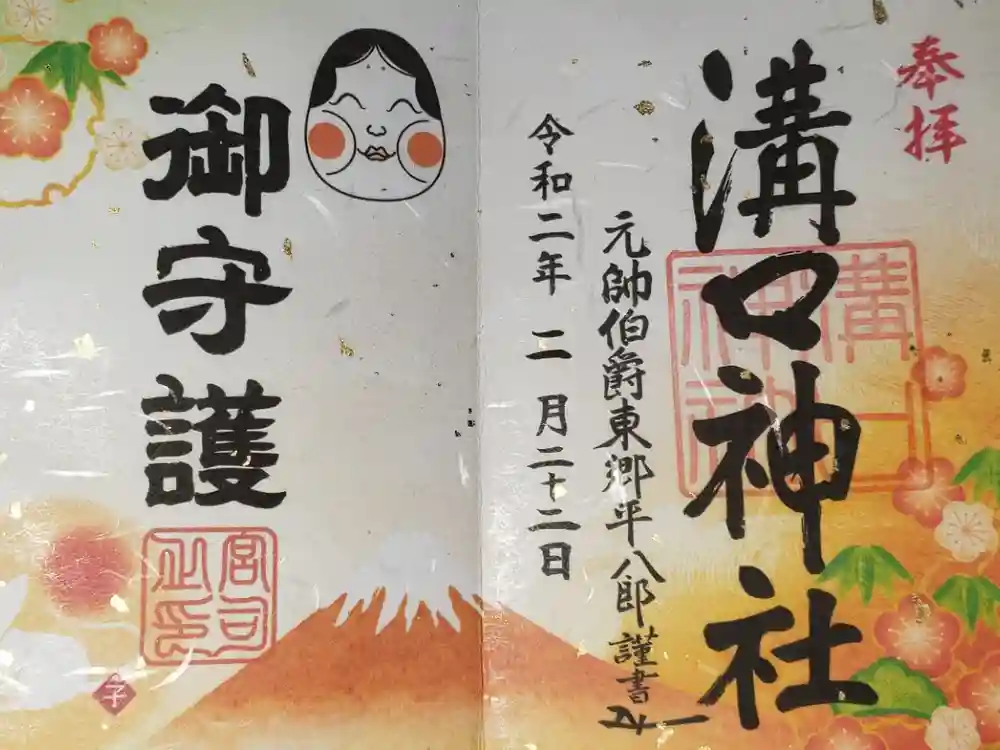 奉拝
溝口神社
溝口神社
元帥伯爵東郷平八郎謹書
令和二年二月二十二日
御守護
宮司之印
子